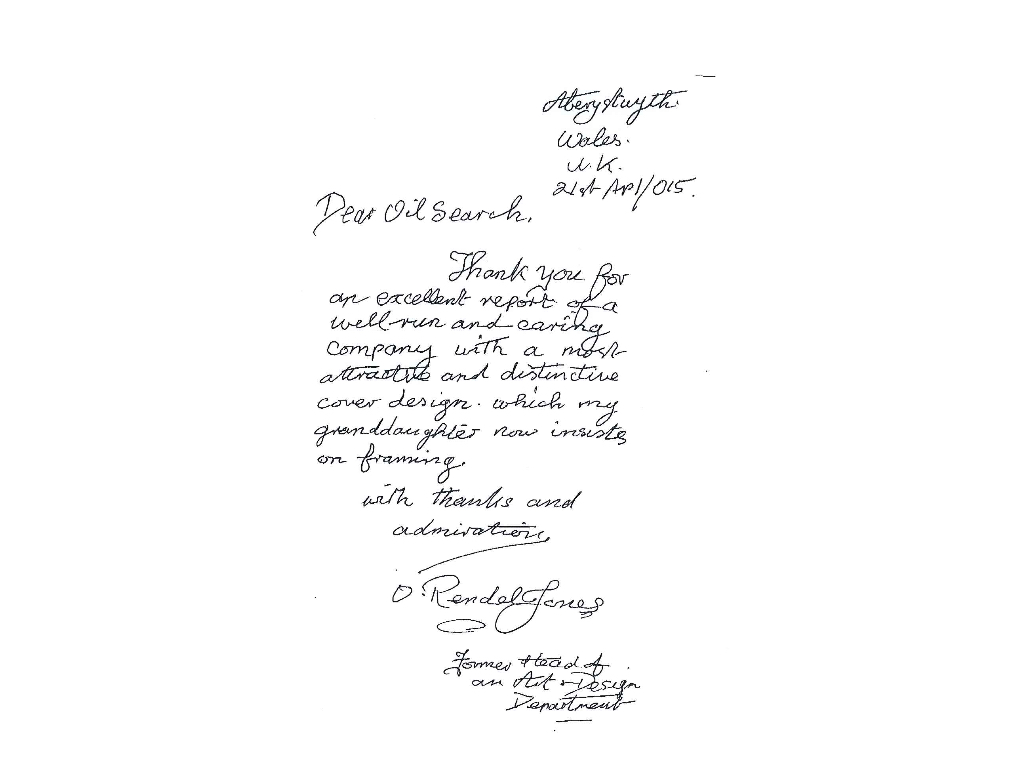 Aberystwyth.
Wales.
U.K.
21st Apl/015.
Dear Oil Search,
Thank you for
an excellent report of a
well-run and caring
company with a most
attractive and distinctive
cover design. which my
granddaughter now insists
on framing.
with thanks and
admiration,
O. Rendel Jones
Former Head of
an Art + Design
Department